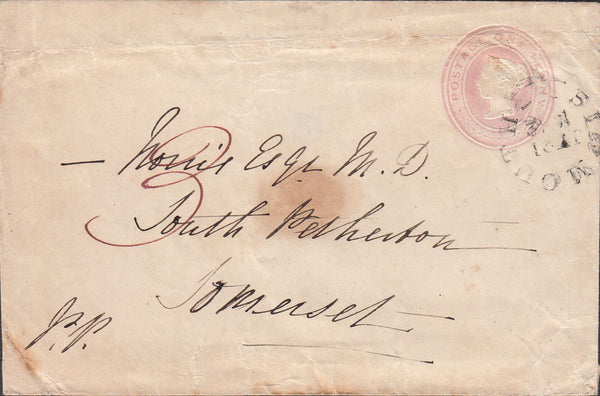 POSTAGE ONE PENNY
SIDMOUTH
3
— Norris Esqr M.D.
South Petherton
Somerset
p.p.